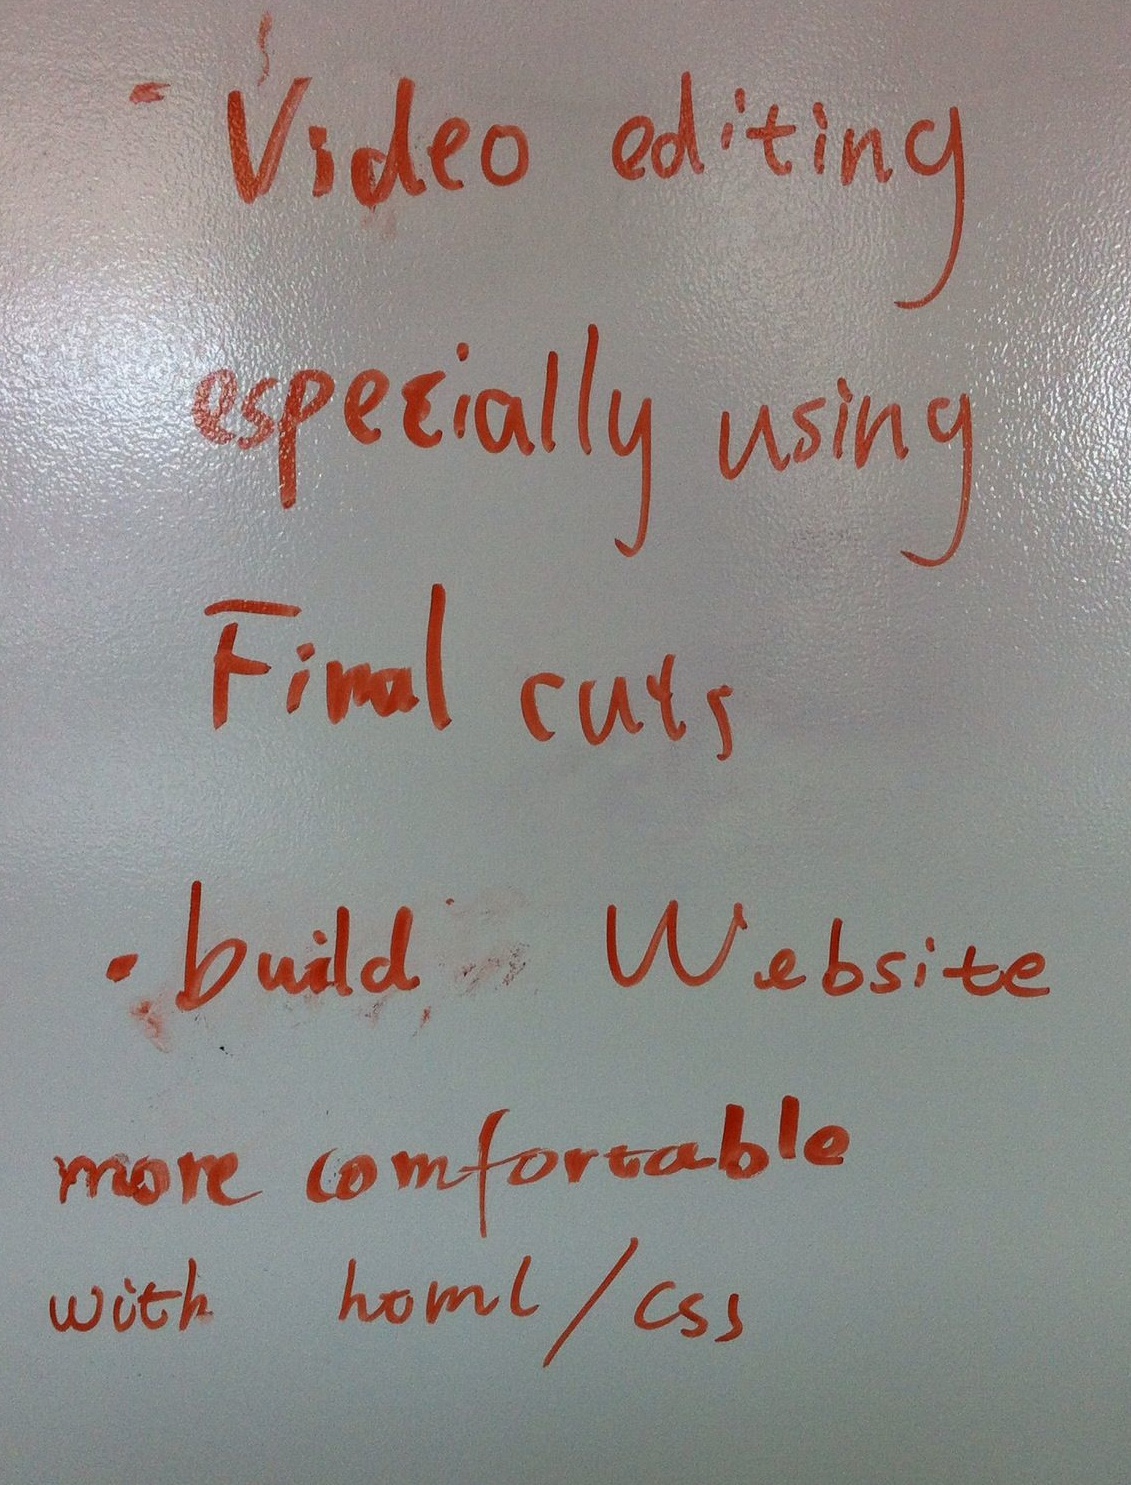 - Video editing
especially using
Final cuts
• build Website
more comfortable
with homl/css